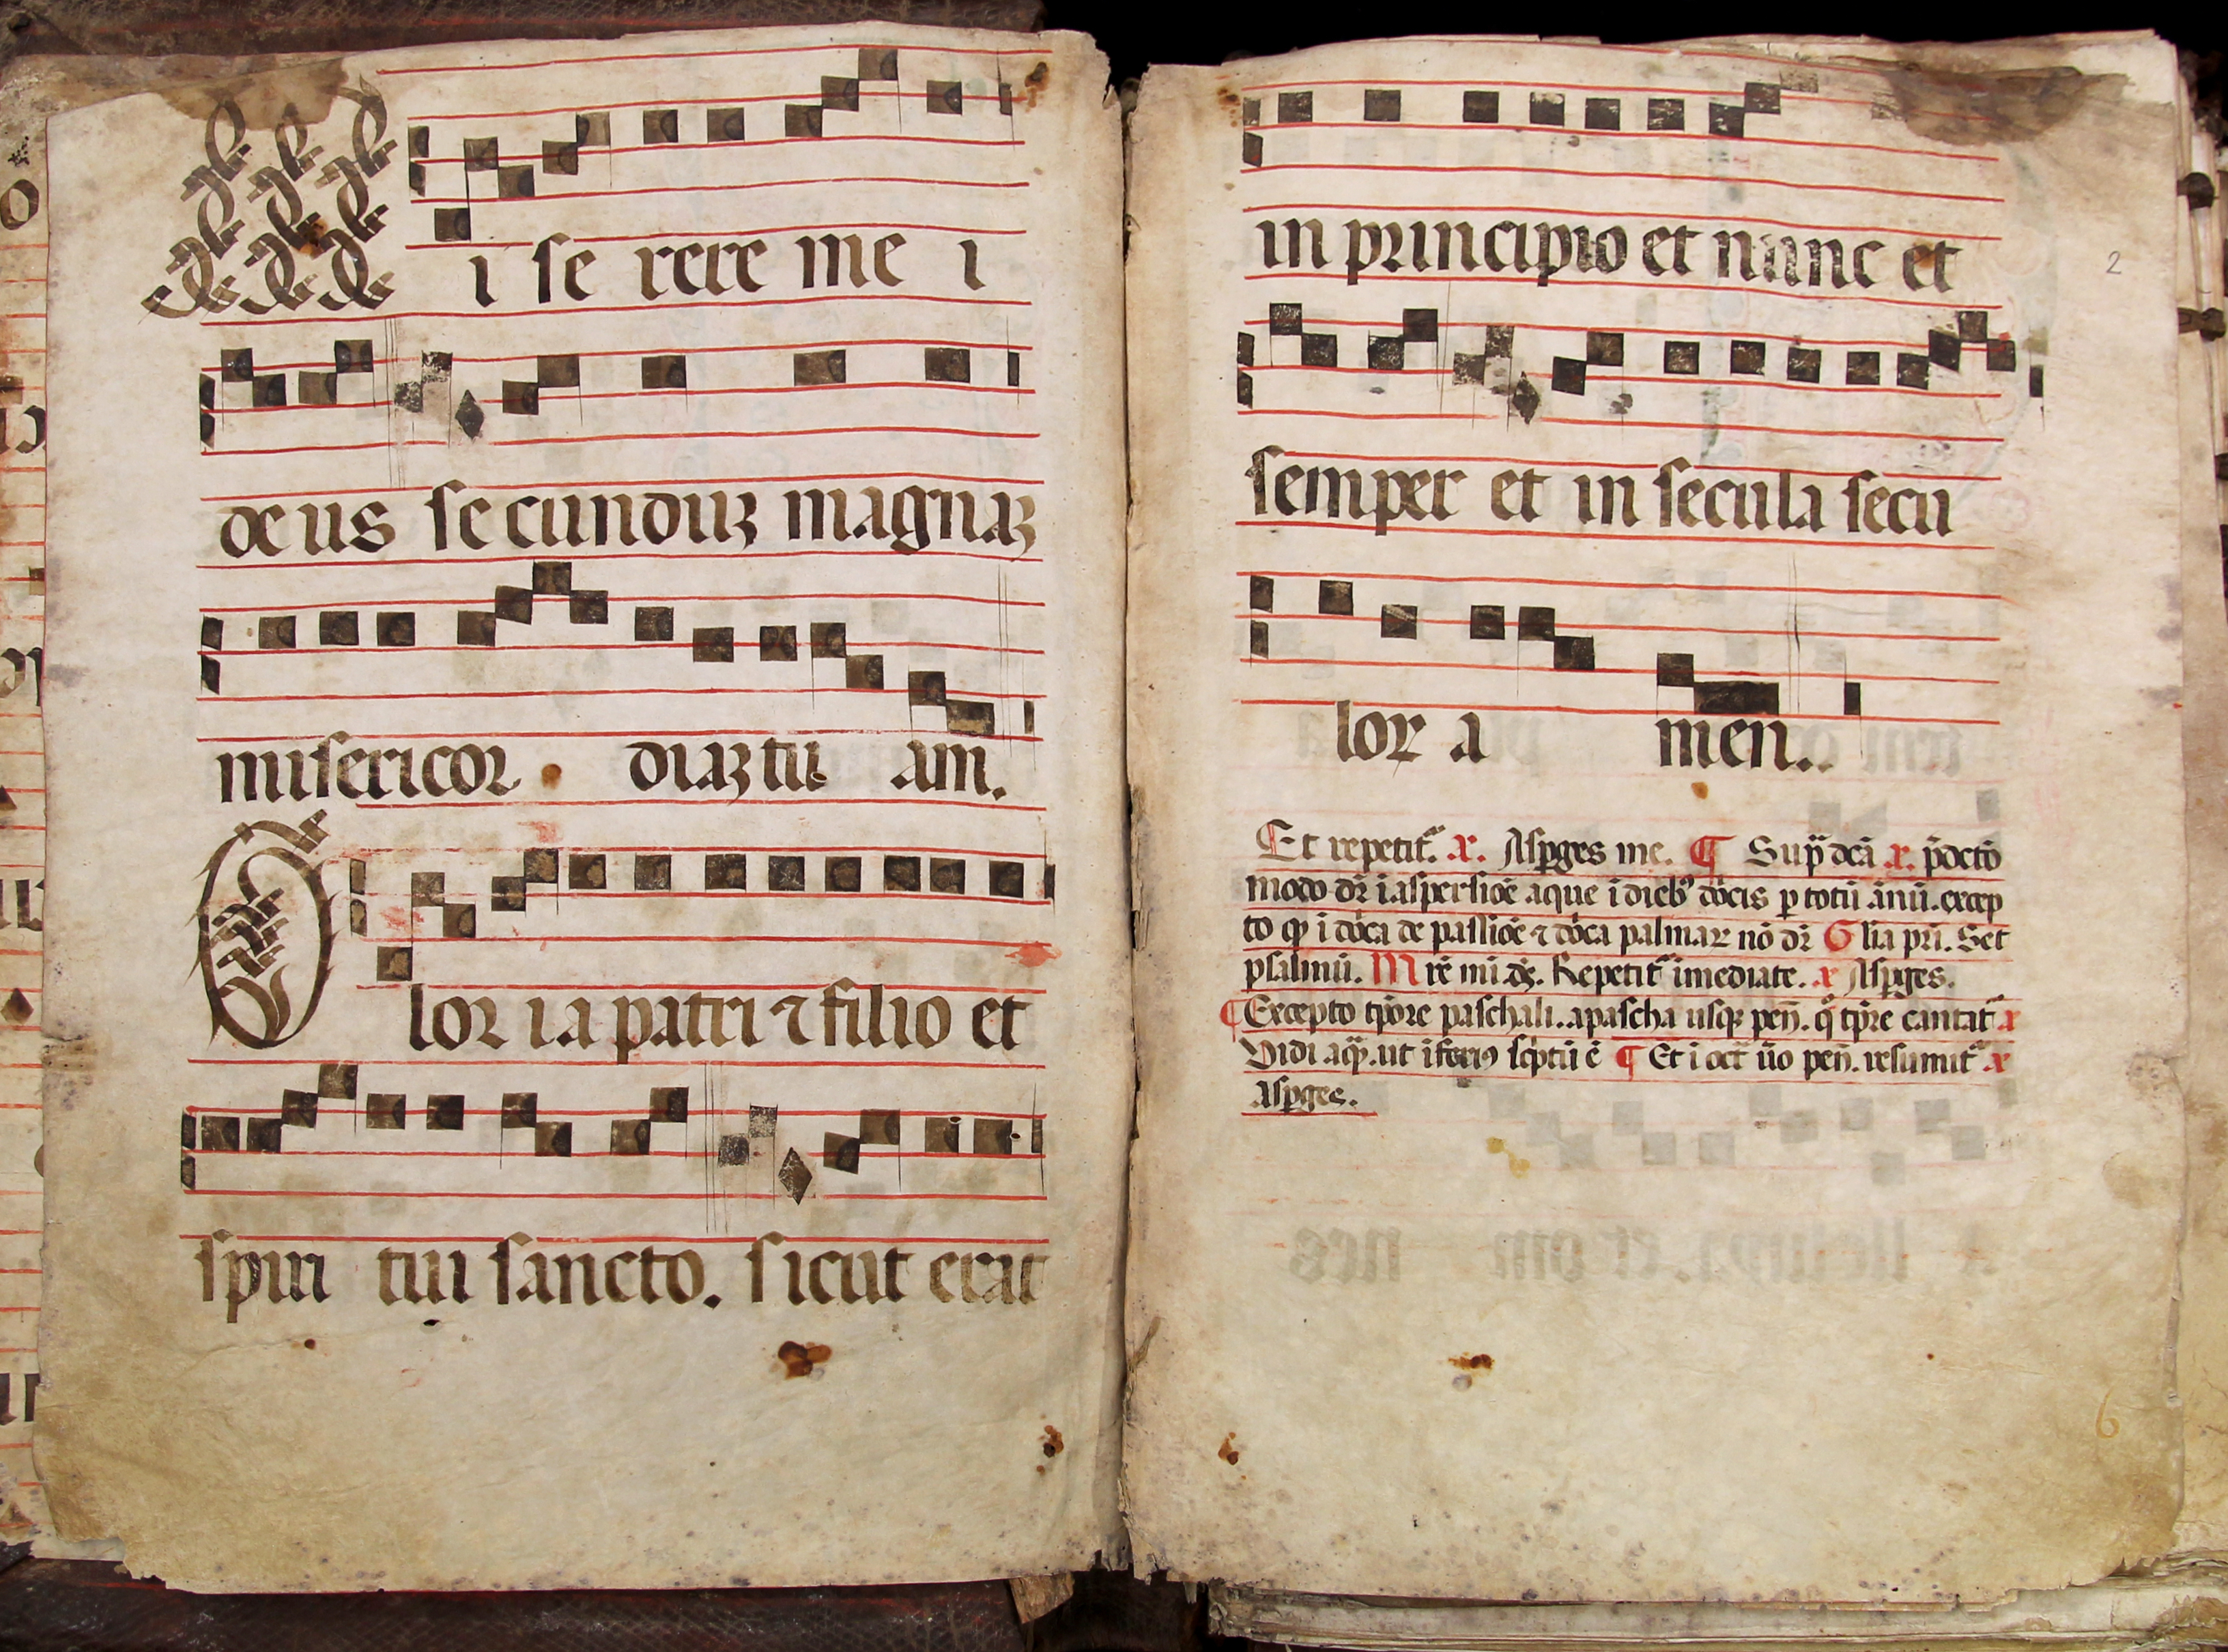 M i se rere me i
deus secunduꝫ magnaꝫ
misericor diaꝫ tu am.
Glor ia patri ⁊ filio et
spiri tui sancto. sicut erat
in principio et nunc et
2
semper et in secula secu
loꝝ a men.
Et repetit᷑. ℟. Asꝑges me. ¶ Sup̄ dcā ℟. p̄dcto
modo dr̄ ī aspersiōe aque ī dieb᷒ dōcis ꝑ totū ānū. excep
to ꝙ ī dōca de passiōe ⁊ dōca palmaꝝ nō dr̄ Glīa pr̄i. Set
psalmū. Mr̄e mī dꝫ. Repetit᷑ īmediate. ℟ Asꝑges.
¶ Excepto tp̄ore paschali. a pascha usqꝫ pen̄. q̊ tp̄re cantat᷑ ℟
Vidi aqꝫ. ut īferi᷒ sc̄ptū ē ¶ Et ī oct̄ ūo pen̄. resumit᷑ ℟
Asꝑges.
6